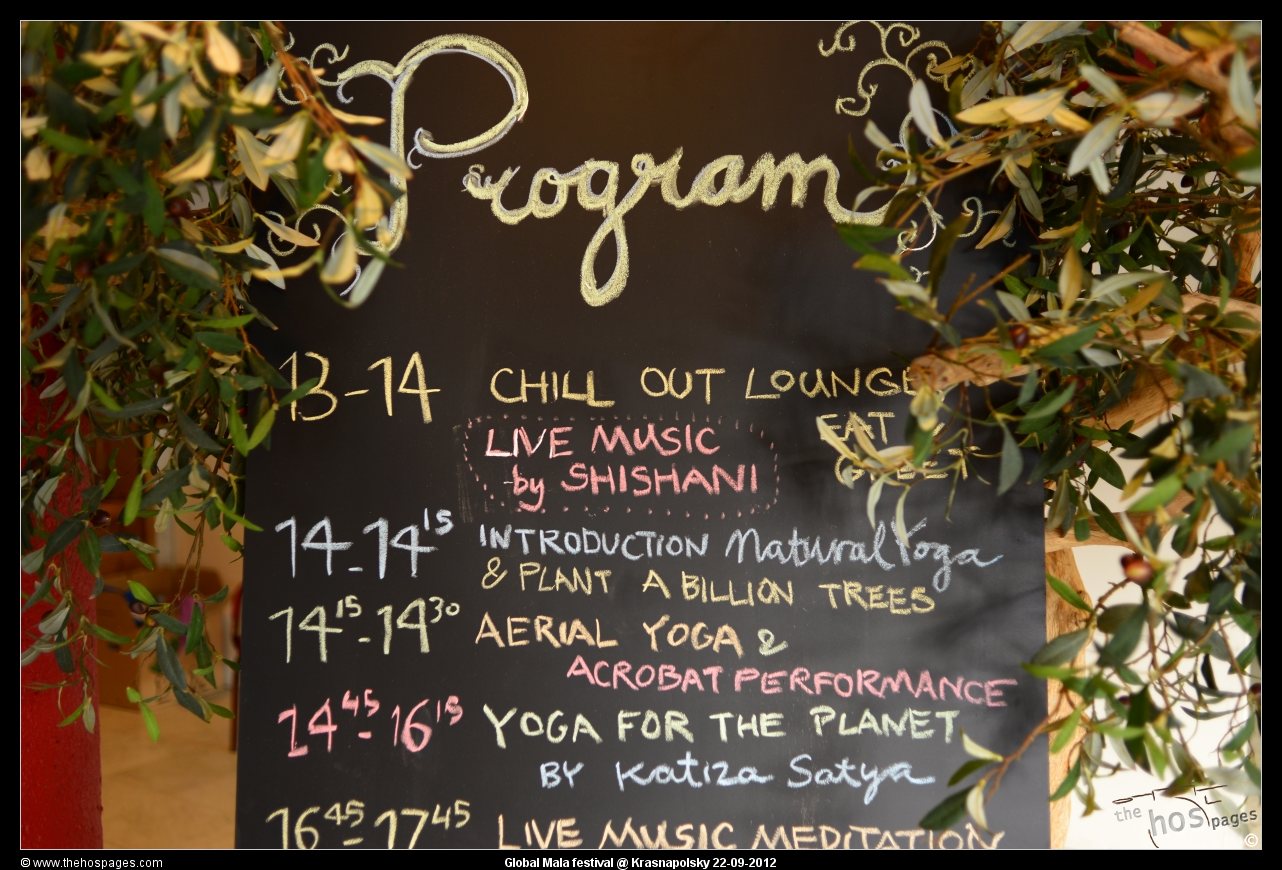 Program
13-14 CHILL OUT LOUNGE
EAT
LIVE MUSIC
by SHISHANI
14-14 15 INTRODUCTION Natural Yoga
& PLANT A BILLION TREES
14 15 - 14 30 AERIAL YOGA &
ACROBAT PERFORMANCE
14 45 - 16 15 YOGA FOR THE PLANET
BY Katiza Satya
16 45 - 17 45 LIVE MUSIC MEDITATION
the hos pages
©
© www.thehospages.com
Global Mala festival @ Krasnapolsky 22-09-2012